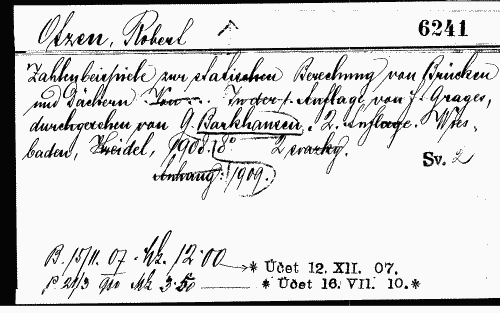 Otzen, Robert 6241
Zahlenbeispiele zur statischen Berechnung von Brücken
und Dächern. In der 1. Auflage von F. Grages,
durchgesehen von G. Barkhausen. 2. Auflage. Wies-
baden, Kreidel, 1908. 8° 2 svazky.
Sv. 2
Anhang: 1909.
B. 15/11. 07 - Mk. 12·00 * Účet 12. XII. 07.
910 Mk 3·50 * Účet 16. VII. 10.*